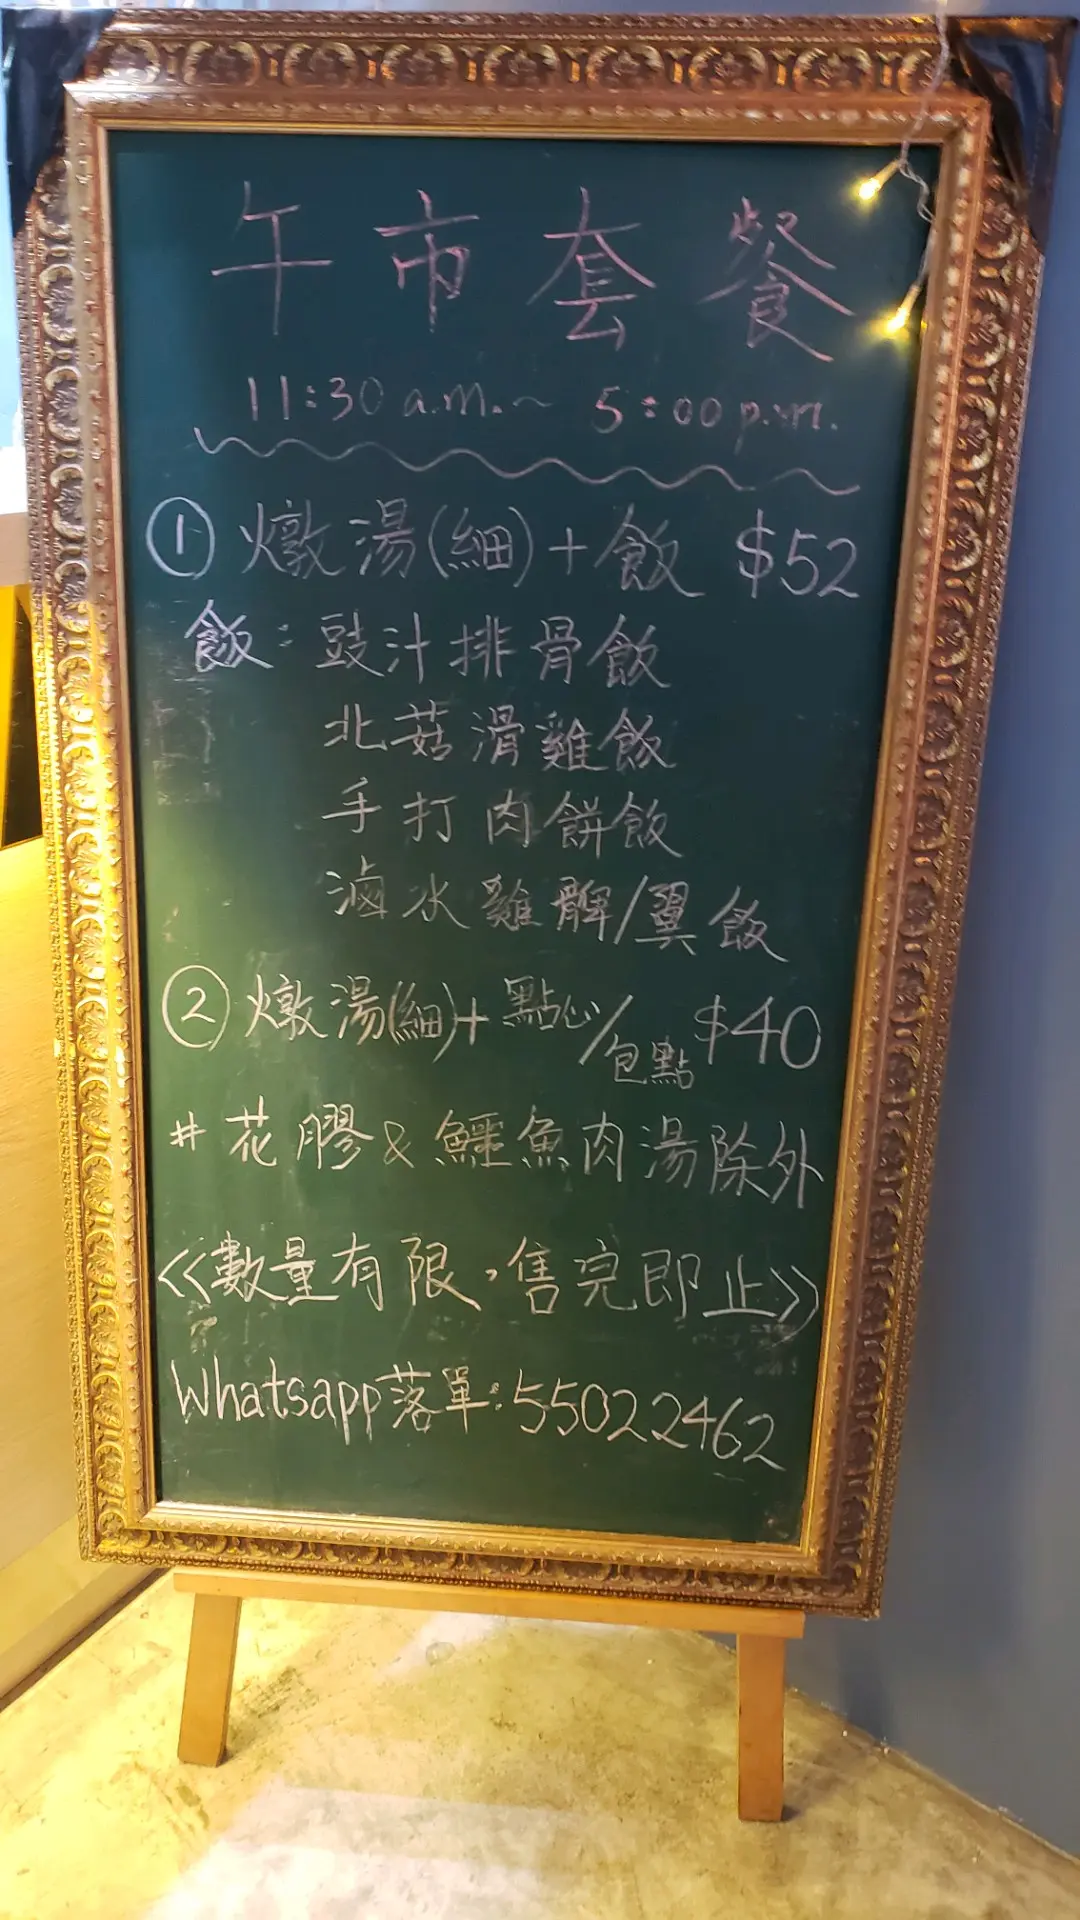 午市套餐
11:30 a.m. ~ 5:00 p.m.
① 燉湯(細)+飯 $52
飯：豉汁排骨飯
北菇滑雞飯
手打肉餅飯
滷水雞髀/翼飯
② 燉湯(細)+點心/包點 $40
# 花膠 & 鱷魚肉湯除外
<<數量有限，售完即止>>
Whatsapp落單：55022462